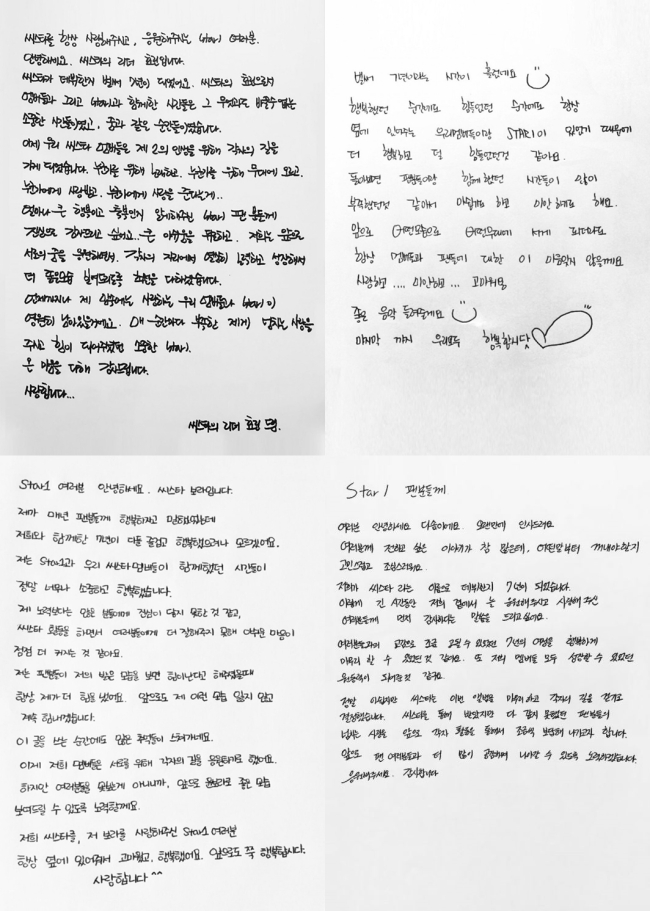 씨스타를 항상 사랑해주시고, 응원해주시는 star1 여러분.
안녕하세요. 씨스타의 리더 효린입니다.
씨스타가 데뷔한지 벌써 7년이 되었어요. 씨스타의 효린으로서
멤버들과 그리고 star1과 함께한 시간들은 그 무엇과도 바꿀수 없는
소중한 시간들이었고, 꿈과 같은 순간들이었습니다.
이제 우리 씨스타 멤버들은 제 2의 인생을 위해 각자의 길을
가게 되었습니다. 누군가를 위해 노래하고. 누군가를 위해 무대에 오르고.
누군가에게 사랑받고. 누군가에게 사랑을 준다는게..
얼마나 큰 행복이고 축복인지 알게해주신 star1 팬분들께
진심으로 감사드리고 싶어요.. 큰 아쉬움을 뒤로하고. 저희는 앞으로
서로의 꿈을 응원하면서. 각자의 자리에서 열심히 노력하고 성장해서
더 좋은모습 보여드리도록 최선을 다하겠습니다.
언제까지나 제 맘속에는 사랑하는 우리 멤버들과 star1이
영원히 남아있을거에요. 매 순간마다 부족한 제게 넘치는 사랑을
주시고 힘이 되어주셨던 소중한 star1.
온 마음을 다해 감사드립니다.
사랑합니다...
씨스타의 리더 효린 드림.
벌써 7년이라는 시간이 흘렀네요
행복했던 순간에도 힘들었던 순간에도 항상
옆에 있어주는 우리멤버들이랑 STAR1이 있었기 때문에
더 행복하고 덜 힘들었던것 같아요.
돌아보면 팬분들이랑 함께 했던 시간들이 많이
부족했던것 같아서 아쉽기도 하고 미안하기도 해요.
앞으로 어떤모습으로 어떤무대에 서게 되더라도
항상 멤버들과 팬들에 대한 이 마음잊지 않을게요
사랑하고 .... 미안하고 ... 고마워요
좋은 음악 들려줄게요
마지막 까지 우리모두 행복합시다
Star1 여러분 안녕하세요. 씨스타 보라입니다.
제가 매년 팬분들께 행복하자고 말했었는데
저희와 함께한 7년이 다들 즐겁고 행복했으려나 모르겠어요.
저는 Star1과 우리 씨스타멤버들이 함께했던 시간들이
정말 너무나 소중하고 행복했습니다.
제 노력보다는 많은 분들에게 진심이 닿지 못한 것 같고,
씨스타 활동을 하면서 여러분들에게 더 잘해주지 못해 아쉬운 마음이
점점 더 커지는 것 같아요.
저는 팬분들이 저의 밝은 모습을 보면 힘이난다고 해주셨을때
항상 제가 더 힘을 냈어요. 앞으로도 제 이런 모습 잃지 않고
계속 힘내겠습니다.
이 글을 쓰는 순간에도 많은 추억들이 스쳐가네요.
이제 저희 멤버들은 서로를 위해 각자의 길을 응원하기로 했어요.
하지만 여러분들을 못보는게 아니니까, 앞으로 윤보라로 좋은 모습
보여드릴 수 있도록 노력할게요.
저희 씨스타를, 저 보라를 사랑해주신 Star1 여러분
항상 옆에 있어줘서 고마웠고, 행복했어요. 앞으로도 쭉 행복합시다.
사랑합니다 ^^
Star1 팬분들께
여러분 안녕하세요 다솜이에요. 오랜만에 인사드려요
여러분께 전하고 싶은 이야기가 참 많은데, 어떤말부터 꺼내야할지
고민스럽고 조심스러워요.
저희가 씨스타 라는 이름으로 데뷔한지 7년이 되었습니다.
이렇게 긴 시간동안 저희 곁에서 늘 응원해주시고 사랑해 주신
여러분들께 먼저 감사하다는 말씀을 드리고싶어요.
여러분들과의 교감으로 조금 교될 수 있었던 7년의 여정을 행복하게
마무리 할 수 있었던 것 같아요. 또 저희 멤버들 모두 성장할 수 있었던
원동력이 되어준것 같아요.
정말 아쉽지만 씨스타는 이번 앨범을 마무리하고 각자의 길을 걷기로
결정했습니다. 씨스타를 통해 받았지만 다 갚지 못했던 팬분들의
넘치는 사랑을 앞으로 각자 활동을 통해서 조금씩 보답해 나가고자 합니다.
앞으로 팬 여러분들과 더 많이 공감하며 나아갈 수 있도록 노력하겠습니다.
응원해주세요. 감사합니다